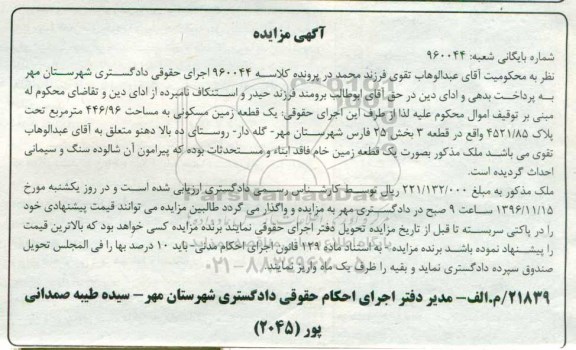 آگهی مزایده
شماره بایگانی شعبه: ۹۶۰۰۴۴
نظر به محکومیت آقای عبدالوهاب تقوی فرزند محمد در پرونده کلاسه ۹۶۰۰۴۴ اجرای حقوقی دادگستری شهرستان مهر
به پرداخت بدهی و ادای دین در حق آقای ابوطالب برومند فرزند حیدر و استنکاف نامبرده از ادای دین و تقاضای محکوم له
مبنی بر توقیف اموال محکوم علیه لذا از طرف این اجرای حقوقی: یک قطعه زمین مسکونی به مساحت ۴۴۶/۹۶ مترمربع تحت
پلاک ۴۵۲۱/۸۵ واقع در قطعه ۳ بخش ۲۵ فارس شهرستان مهر- گله دار- روستای ده بالا دهنو متعلق به آقای عبدالوهاب
تقوی می باشد ملک مذکور بصورت یک قطعه زمین خام فاقد ابناء و مستحدثات بوده که پیرامون آن شالوده سنگ و سیمانی
احداث گردیده است.
ملک مذکور به مبلغ ۲۲۱/۱۳۲/۰۰۰ ریال توسط کارشناس رسمی دادگستری ارزیابی شده است و در روز یکشنبه مورخ
۱۳۹۶/۱۱/۱۵ ساعت ۹ صبح در دادگستری مهر به مزایده و واگذار می گردد طالبین مزایده می توانند قیمت پیشنهادی خود
را در پاکتی سربسته تا قبل از تاریخ مزایده تحویل دفتر اجرای حقوقی نمایند برنده مزایده کسی خواهد بود که بالاترین قیمت
را پیشنهاد نموده باشد برنده مزایده- به استناد ماده ۱۲۹ قانون اجرای احکام مدنی- باید ۱۰ درصد بها را فی المجلس تحویل
صندوق سپرده دادگستری نماید و بقیه را ظرف یک ماه واریز نمایند.
۲۱۸۳۹/م.الف- مدیر دفتر اجرای احکام حقوقی دادگستری شهرستان مهر- سیده طیبه صمدانی
پور (۲۰۴۵)
ParsNamadData
۰۲۱-۸۸۳۴۹۶۷۰